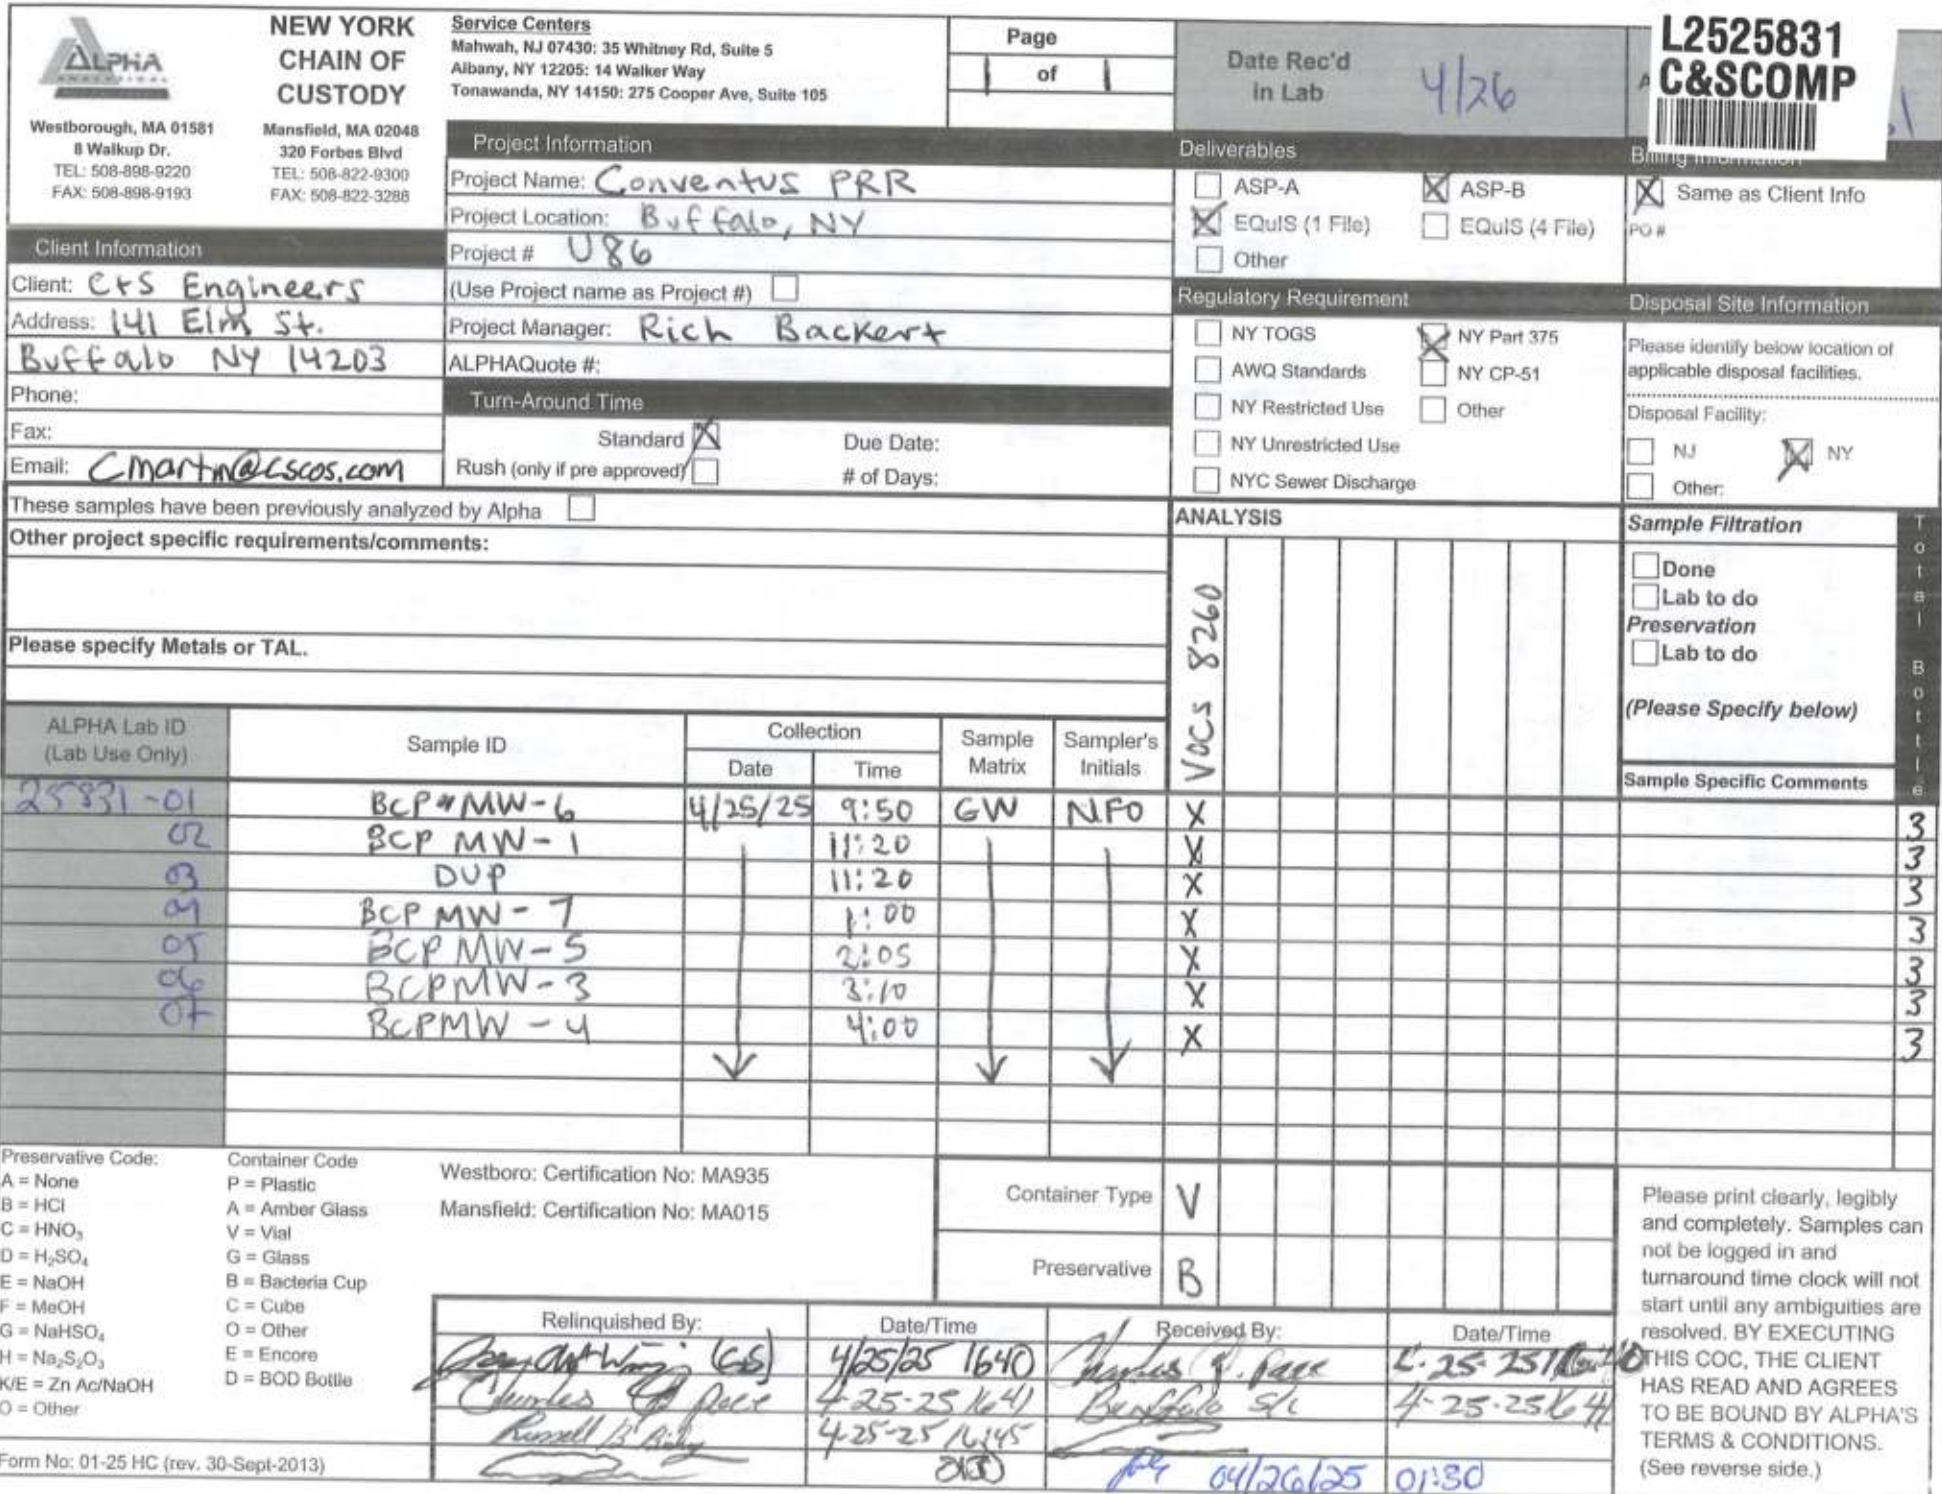 ALPHA
ANALYTICAL
Westborough, MA 01581
8 Walkup Dr.
TEL: 508-898-9220
FAX: 508-898-9193
NEW YORK
CHAIN OF
CUSTODY
Mansfield, MA 02048
320 Forbes Blvd
TEL: 508-822-9300
FAX: 508-822-3288
Service Centers
Mahwah, NJ 07430: 35 Whitney Rd, Suite 5
Albany, NY 12205: 14 Walker Way
Tonawanda, NY 14150: 275 Cooper Ave, Suite 105
Page
1 of 1
Date Rec'd
in Lab
4/26
L2525831
C&SCOMP
Project Information
Project Name: Conventus PRR
Project Location: Buffalo, NY
Project # U86
(Use Project name as Project #)
Project Manager: Rich Backert
ALPHAQuote #:
Turn-Around Time
Standard X Due Date:
Rush (only if pre approved) # of Days:
Deliverables
ASP-A X ASP-B
X EQuIS (1 File) EQuIS (4 File)
Other
Billing Information
X Same as Client Info
PO #
Client Information
Client: C+S Engineers
Address: 141 Elm St.
Buffalo NY 14203
Phone:
Fax:
Email: Cmartin@cscos.com
Regulatory Requirement
NY TOGS X NY Part 375
AWQ Standards NY CP-51
NY Restricted Use Other
NY Unrestricted Use
NYC Sewer Discharge
Disposal Site Information
Please identify below location of
applicable disposal facilities.
Disposal Facility:
NJ X NY
Other:
These samples have been previously analyzed by Alpha
Other project specific requirements/comments:
Please specify Metals or TAL.
ANALYSIS
VOCs 8260
Sample Filtration
Done
Lab to do
Preservation
Lab to do
(Please Specify below)
Total Bottle
ALPHA Lab ID
(Lab Use Only)
Sample ID
Collection
Date Time
Sample
Matrix
Sampler's
Initials
Sample Specific Comments
25831-01 BCP MW-6 4/25/25 9:50 GW NFO X 3
02 BCP MW-1 11:20 X 3
03 DUP 11:20 X 3
04 BCP MW-7 1:00 X 3
05 BCP MW-5 2:05 X 3
06 BCPMW-3 3:10 X 3
07 BCPMW-4 4:00 X 3
Preservative Code:
A = None
B = HCl
C = HNO₃
D = H₂SO₄
E = NaOH
F = MeOH
G = NaHSO₄
H = Na₂S₂O₃
K/E = Zn Ac/NaOH
O = Other
Container Code
P = Plastic
A = Amber Glass
V = Vial
G = Glass
B = Bacteria Cup
C = Cube
O = Other
E = Encore
D = BOD Bottle
Westboro: Certification No: MA935
Mansfield: Certification No: MA015
Container Type V
Preservative B
Relinquished By: Date/Time Received By: Date/Time
(CS) 4/25/25 1640 Charles
Charles 4-25-25 1641 Buffalo S/C 4-25-25 1641
Russell B 4-25-25 1645
04/26/25 01:30
Please print clearly, legibly
and completely. Samples can
not be logged in and
turnaround time clock will not
start until any ambiguities are
resolved. BY EXECUTING
THIS COC, THE CLIENT
HAS READ AND AGREES
TO BE BOUND BY ALPHA'S
TERMS & CONDITIONS.
(See reverse side.)
Form No: 01-25 HC (rev. 30-Sept-2013)